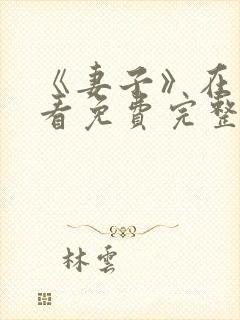 《妻子》在
看免费完整
林雲